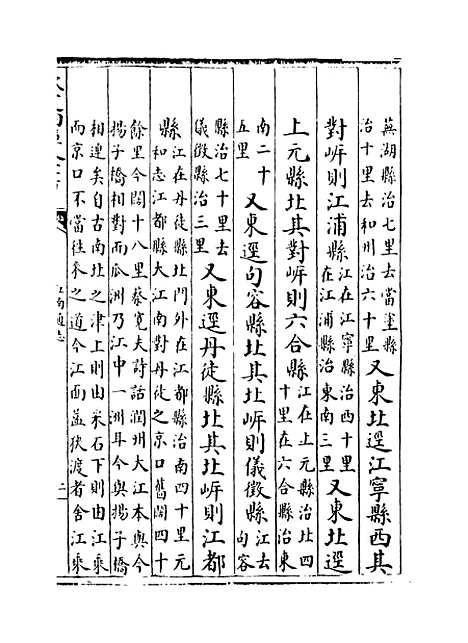 蕪湖縣治七里去當塗縣
治十里去和州治六十里
又東北逕江寧縣西其
對岸則江浦縣
江在江寧縣治西十里
在江浦縣治東南三里
又東北逕
上元縣北其對岸則六合縣
江在上元縣治北四
十里在六合縣治東
南二十
五里
又東逕句容縣北其北岸則儀徵縣
江去
句容
縣治七十里去
儀徵縣治三里
又東逕丹徒縣北其北岸則江都
縣
江在丹徒縣北門外在江都縣治南四十里元
和志江都縣大江南對丹徒之京口舊闊四十
餘里今闊十八里蔡寛夫詩話潤州大江本與今
揚子橋相對而瓜洲乃江中一洲耳今與揚子橋
相連矣自古南北之津上則由采石下則由江乘
而京口不當往来之道今江面益狹渡者舍江乘
江南通志
二